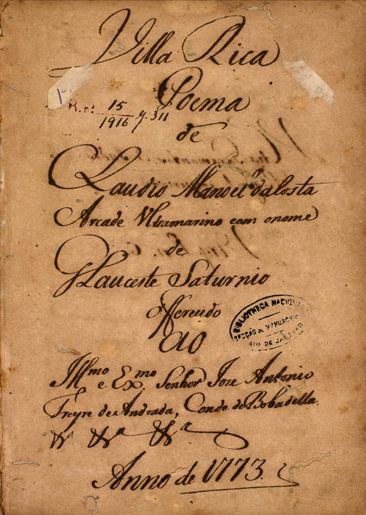 Villa Rica
Poema
R. o. 15
1916
de
Claudio Manoel daCosta
Arcade Ultramarino com onome
de
Glauceste Saturnio
offerecido
ao
Illmo e Exmo Senhor Joze Antonio
Freyre de Andrada, Conde de Bobadella.
&ª &ª &ª
BIBLIOTHECA NACIONAL
SECÇÃO DE MANUSCRIPTOS
RIO DE JANEIRO
Anno de 1773.